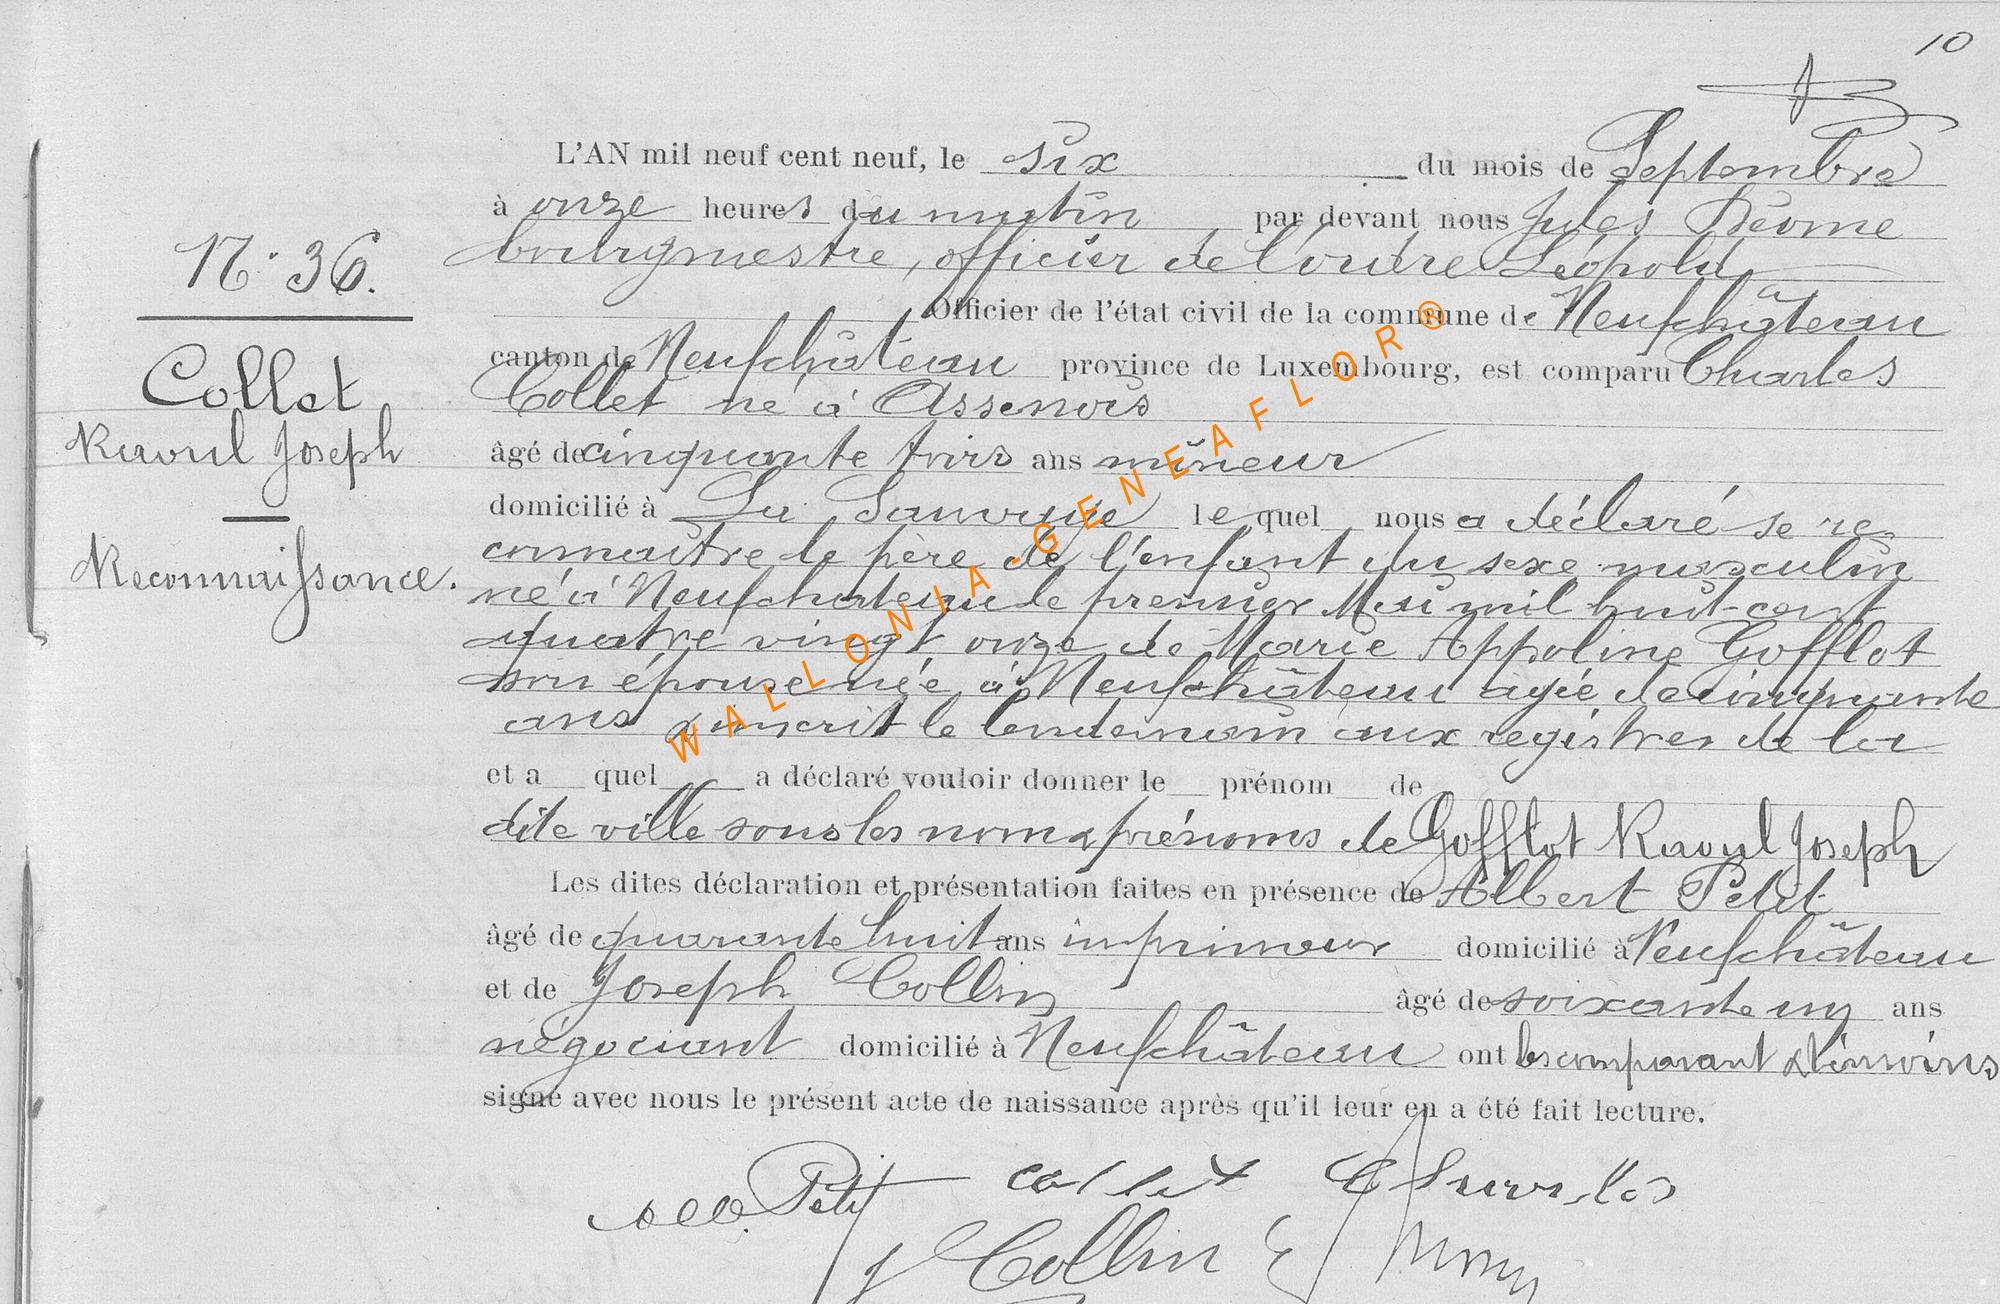 10
L'AN mil neuf cent neuf, le six du mois de Septembre
à onze heures du matin par devant nous Jules Déome
bourgmestre, officier de l'ordre Léopold
Officier de l'état civil de la commune de Neufchâteau
N° 36.
canton de Neufchâteau province de Luxembourg, est comparu Charles
Collet né à Assenois
Collet
Raoul Joseph
âgé de cinquante trois ans mineur
domicilié à La Sauvage lequel nous a déclaré se re-
connaître le père de l'enfant du sexe masculin
Reconnaissance.
né à Neufchateau le premier Mai mil huit-cent
quatre vingt onze de Marie Appoline Gofflot
son épouse née à Neufchâteau agée de cinquante
ans & inscrit le lendemain aux registres de la
et a quel a déclaré vouloir donner le prénom de
dite ville sous les nom & prénoms de Gofflot Raoul Joseph
Les dites déclaration et présentation faites en présence de Albert Petit
âgé de quarante huit ans imprimeur domicilié à Neufchâteau
et de Joseph Collin âgé de soixante un ans
négociant domicilié à Neufchâteau ont les comparant & témoins
signé avec nous le présent acte de naissance après qu'il leur en a été fait lecture.
Alb. Petit collet Charles
J Collin
WALLONIA-GENEAFLOR®